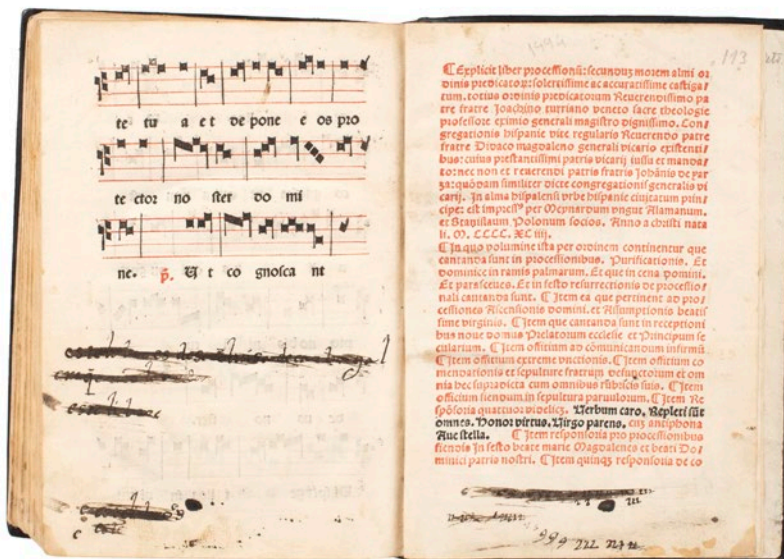 te tu a et de pone e os pro
te ctor no ster do mi
ne. p̃. U t co gnosca nt
1494
113
¶ Explicit liber processionū: secunduȝ morem almi or
dinis predicatoꝝ: solertissime ac accuratissime castiga/
tum. totius ordinis predicatorum Reuerendissimo pa
tre fratre Joachino turriano veneto sacre theologie
professore eximio generali magistro dignissimo. Con/
gregationis hispanie vite regularis Reuerendo patre
fratre Didaco magdaleno generali vicario existenti/
bus: cuius prestantissimi patris vicarij iussu et manda/
to: nec non et reuerendi patris fratris Johānis de yar
ȝa: quōdam similiter dicte congregationis generalis vi
carij. In alma hispalensi vrbe hispanie ciuitatum prin/
cipe: est impressꝰ per Meynardum vngut Alamanum.
et Stanislaum Polonum socios. Anno a christi nata
li. M. CCCC. XC iiij.
¶ In quo volumine ista per ordinem continentur que
cantanda sunt in processionibus. Purificationis. Et
dominice in ramis palmarum. Et que in cena domini.
Et parasceues. Et in festo resurrectionis de processio/
nali cantanda sunt. ¶ Item ea que pertinent ad pro/
cessiones Ascensionis domini. et Assumptionis beatis
sime virginis. ¶ Item que cantanda sunt in receptioni
bus noue domus Prelatorum ecclesie et Principum se
cularium. ¶ Item offitium ad cōmunicandum infirmū
¶ Item offitium extreme vnctionis. ¶ Item offitium co
mendationis et sepulture fratruȝ defunctorum et om
nia hec supradicta cum omnibus rubricis suis. ¶ Item
officium fiendum in sepultura paruulorum. ¶ Item Re
spōsoria quattuor videlicȝ. Uerbum caro. Repleti sūt
omnes. Honor virtus. Uirgo parens. cuȝ antiphona
Aue stella. ¶ Item responsoria pro processionibus
fiendis in festo beate marie Magdalenes et beati Do/
minici patris nostri. ¶ Item quinqȝ responsoria de co